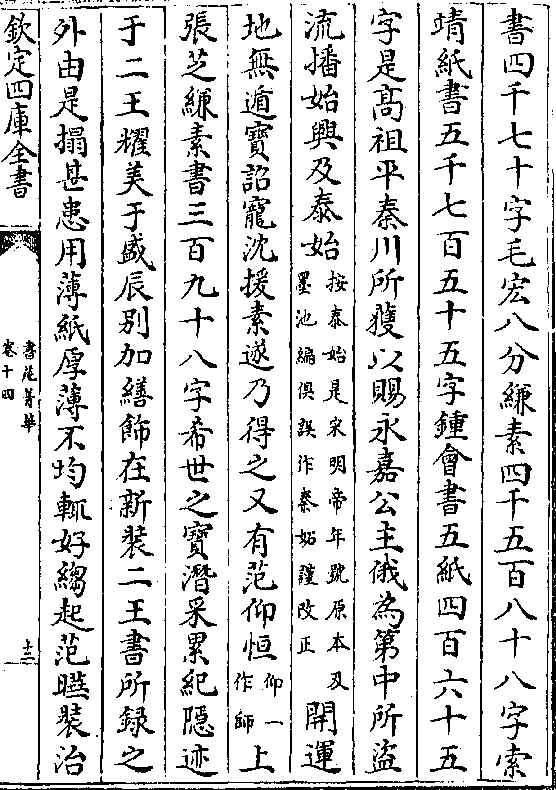 書四千七十字毛宏八分縑素四千五百八十八字索
靖紙書五千七百五十五字鍾會書五紙四百六十五
字是髙祖平秦川所獲以賜永嘉公主俄為第中所盜
流播始興及泰始
按泰始是宋明帝年號原本及
墨池編俱誤作秦妬謹改正
開運
地無遁寳詔寵沈援素遂乃得之又有范仰恒
仰一
作師
上
張芝縑素書三百九十八字希世之寳潛采累紀隱迹
于二王耀美于盛辰别加繕飾在新装二王書所録之
外由是搨甚患用薄紙厚薄不均輒好縐起范瞱装治
欽定四庫全書
書苑菁華
卷十四
十三